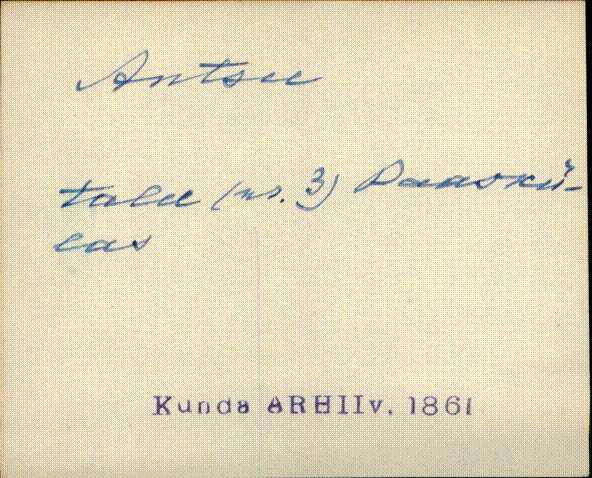 Antsu
talu (nr. 3) Paaskü-
las
Kunda ARHIIv. 1861